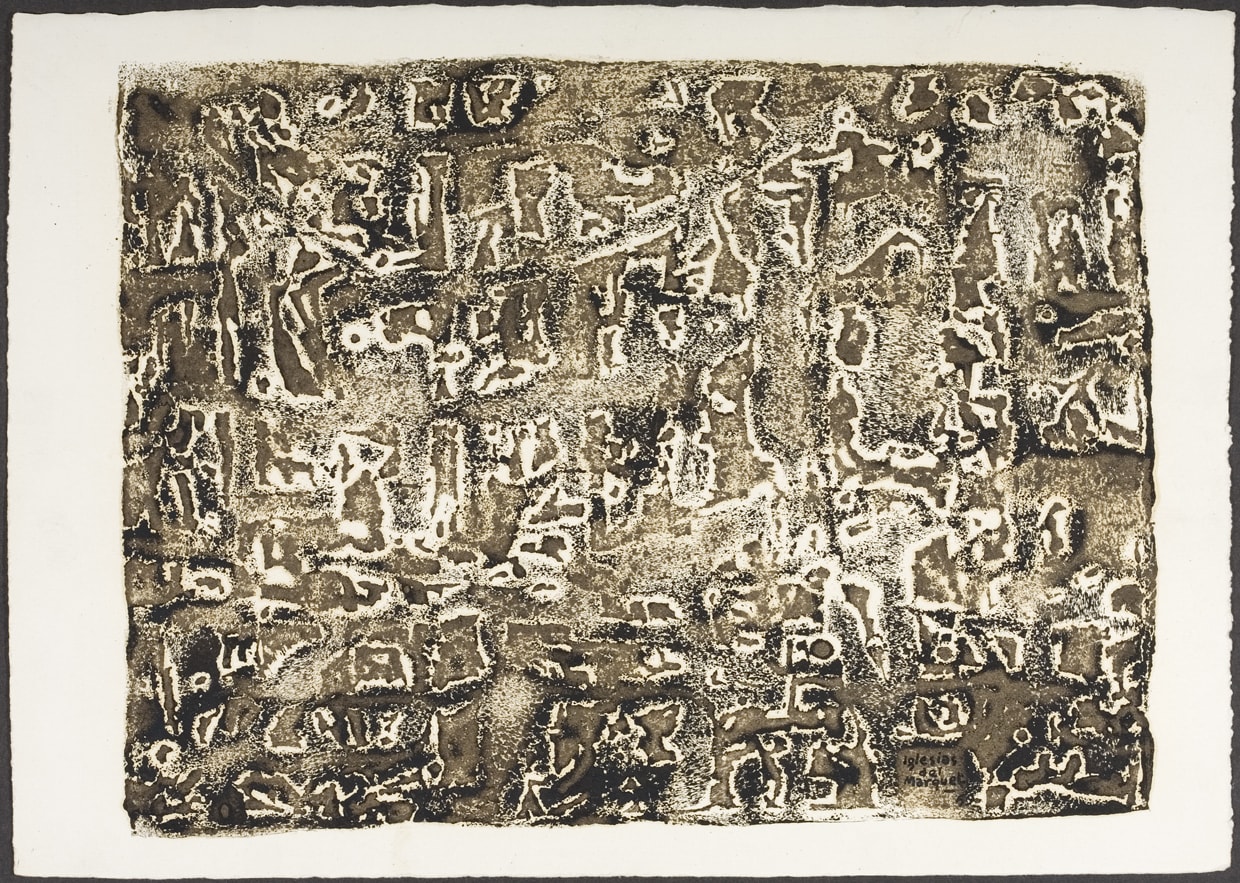 Iglesias
del
Marquet